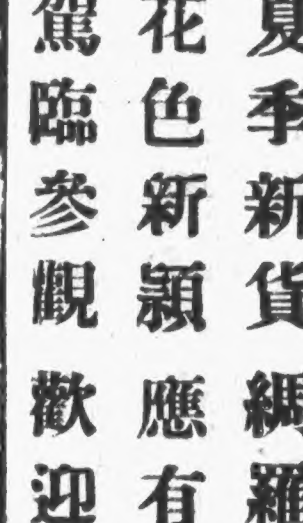 夏季新貨綢羅
花色新穎應有
駕臨參觀歡迎